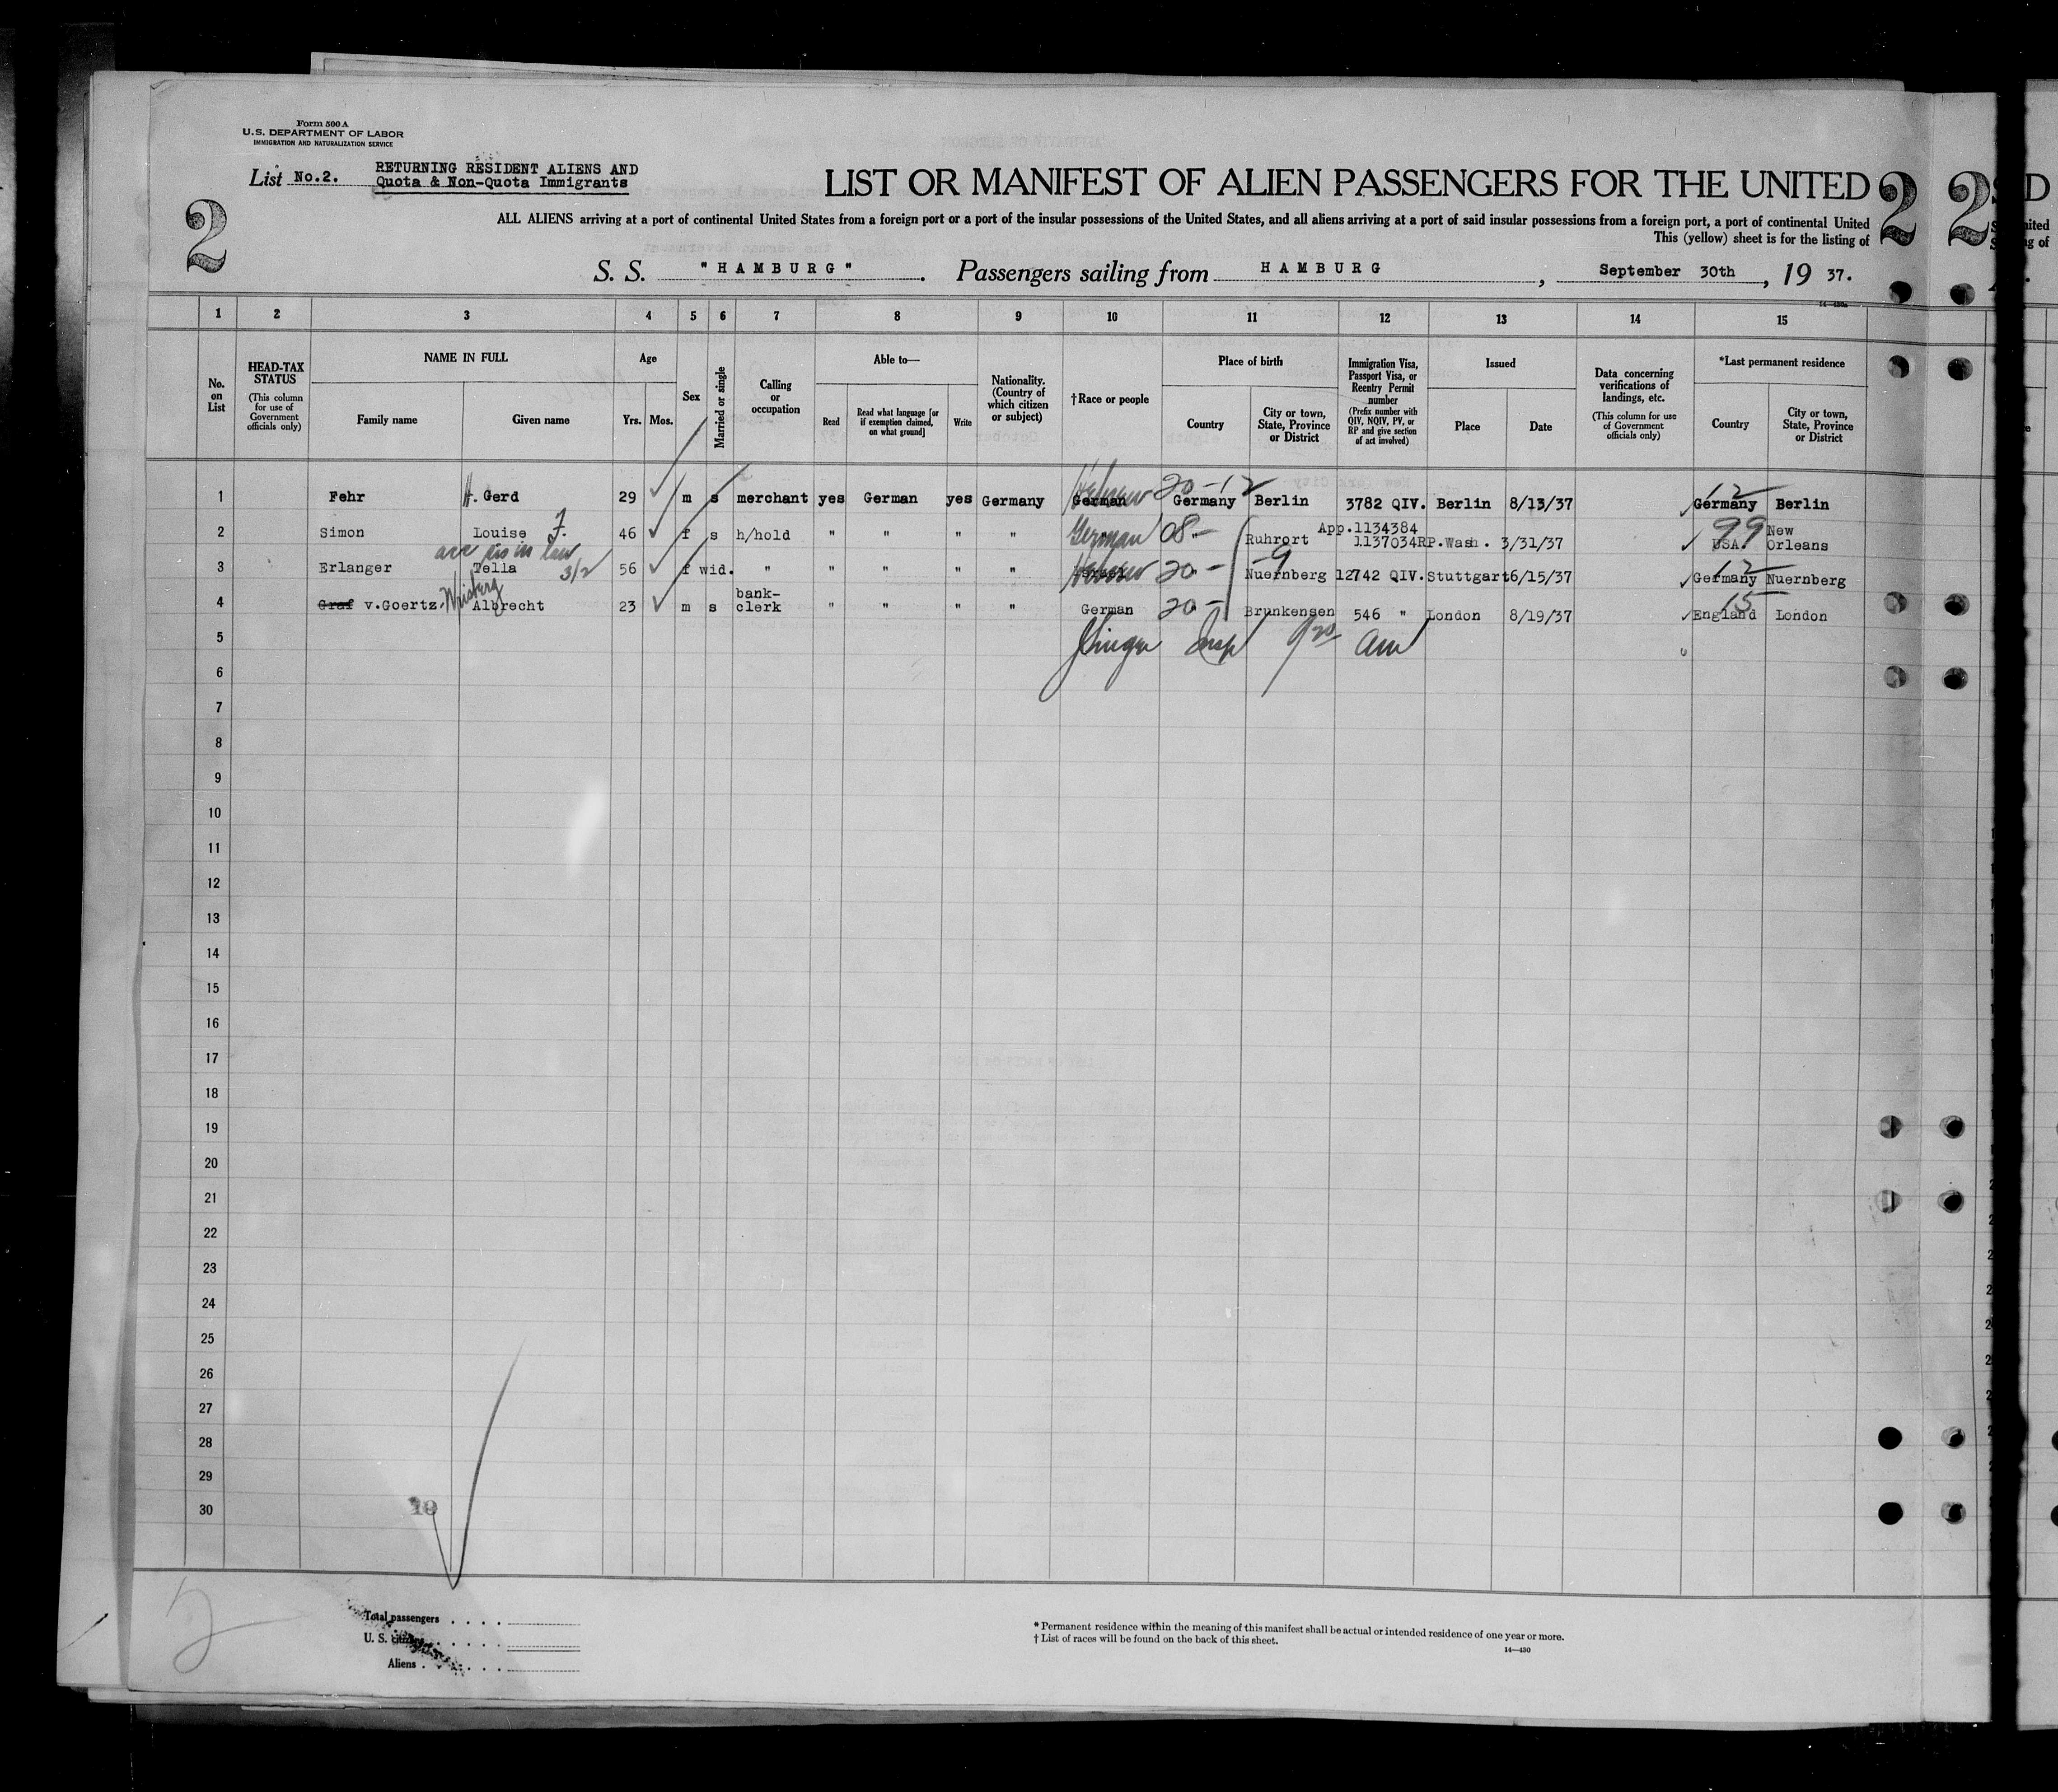 Form 500 A
U.S. DEPARTMENT OF LABOR
IMMIGRATION AND NATURALIZATION SERVICE
List No.2. RETURNING RESIDENT ALIENS AND
Quota & Non-Quota Immigrants
LIST OR MANIFEST OF ALIEN PASSENGERS FOR THE UNITED
2 2 2
ALL ALIENS arriving at a port of continental United States from a foreign port or a port of the insular possessions of the United States, and all aliens arriving at a port of said insular possessions from a foreign port, a port of continental United
This (yellow) sheet is for the listing of
S. S. "HAMBURG". Passengers sailing from HAMBURG, September 30th, 19 37.
1 2 3 4 5 6 7 8 9 10 11 12 13 14 15
No. on List
HEAD-TAX STATUS (This column for use of Government officials only)
NAME IN FULL
Family name Given name
Age
Yrs. Mos.
Sex
Married or single
Calling or occupation
Able to—
Read Read what language [or if exemption claimed, on what ground] Write
Nationality. (Country of which citizen or subject)
†Race or people
Place of birth
Country City or town, State, Province or District
Immigration Visa, Passport Visa, or Reentry Permit number (Prefix number with QIV, NQIV, PV, or RP and give section of act involved)
Issued
Place Date
Data concerning verifications of landings, etc. (This column for use of Government officials only)
*Last permanent residence
Country City or town, State, Province or District
1 Fehr H. Gerd 29 m s merchant yes German yes Germany German Hebrew 20-12 Germany Berlin 3782 QIV. Berlin 8/13/37 12 Germany Berlin
2 Simon Louise F. 46 f s h/hold " " " " German 08- Ruhrort App.1134384 1137034RP.Wash. 3/31/37 99 USA. New Orleans
3 Erlanger Tella 56 f wid. " " " " " Hebrew 20- -9 Nuernberg 12742 QIV. Stuttgart 6/15/37 12 Germany Nuernberg
4 Graf v.Goertz- Wrisberg Albrecht 23 m s bank-clerk " " " " German 20- Brunkensen 546 " London 8/19/37 15 England London
5 Insp 9 am
6
7
8
9
10
11
12
13
14
15
16
17
18
19
20
21
22
23
24
25
26
27
28
29
30
Total passengers
U. S. citizens
Aliens
* Permanent residence within the meaning of this manifest shall be actual or intended residence of one year or more.
† List of races will be found on the back of this sheet.
14—430